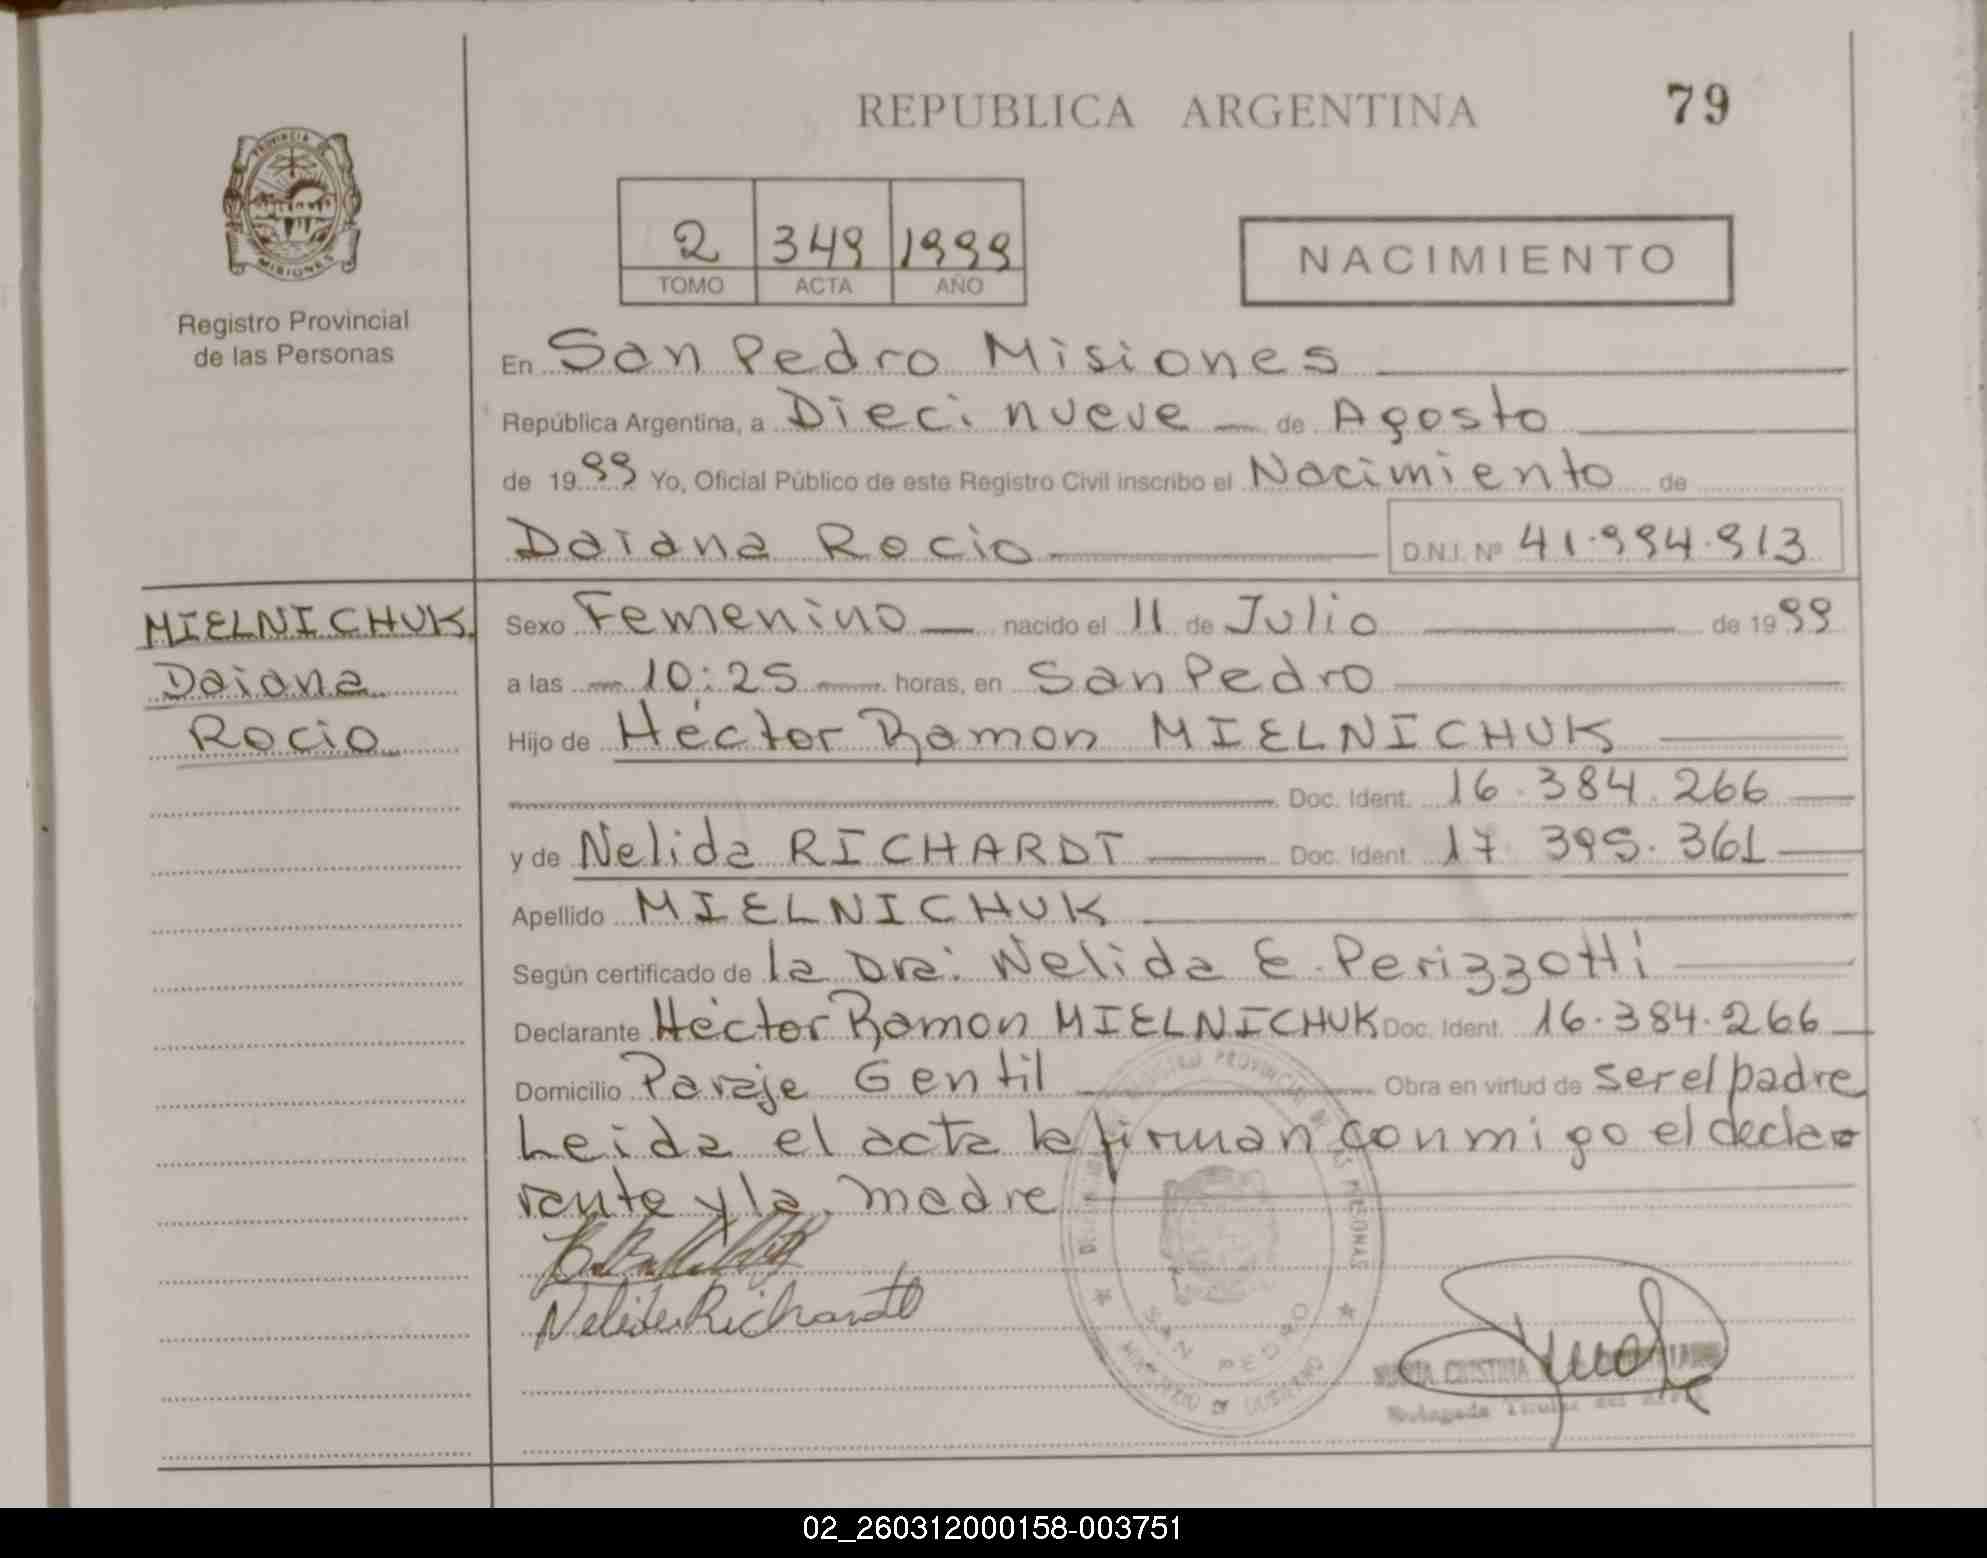 REPUBLICA ARGENTINA
79
PROVINCIA DE
MISIONES
Registro Provincial
de las Personas
2 349 1999
TOMO ACTA AÑO
NACIMIENTO
En San Pedro Misiones
República Argentina, a Dieci nueve de Agosto
de 1999 Yo, Oficial Público de este Registro Civil inscribo el Nacimiento de
Daiana Rocio D.N.I. Nº 41.994.913
MIELNICHUK
Daiana
Rocio
Sexo Femenino nacido el 11 de Julio de 1999
a las 10:25 horas, en San Pedro
Hijo de Héctor Ramon MIELNICHUK
Doc. Ident. 16.384.266
y de Nelida RICHARDT Doc. Ident. 17.395.361
Apellido MIELNICHUK
Según certificado de la Dra: Nelida E. Perizzotti
Declarante Héctor Ramon MIELNICHUK Doc. Ident. 16.384.266
Domicilio Paraje Gentil Obra en virtud de ser el padre
Leida el acta la firman conmigo el decla
rante y la madre
Nelida Richardt
REGISTRO PROVINCIAL DE LAS PERSONAS
SAN PEDRO
MINISTERIO DE GOBIERNO
CRISTINA
Titular
02_260312000158-003751